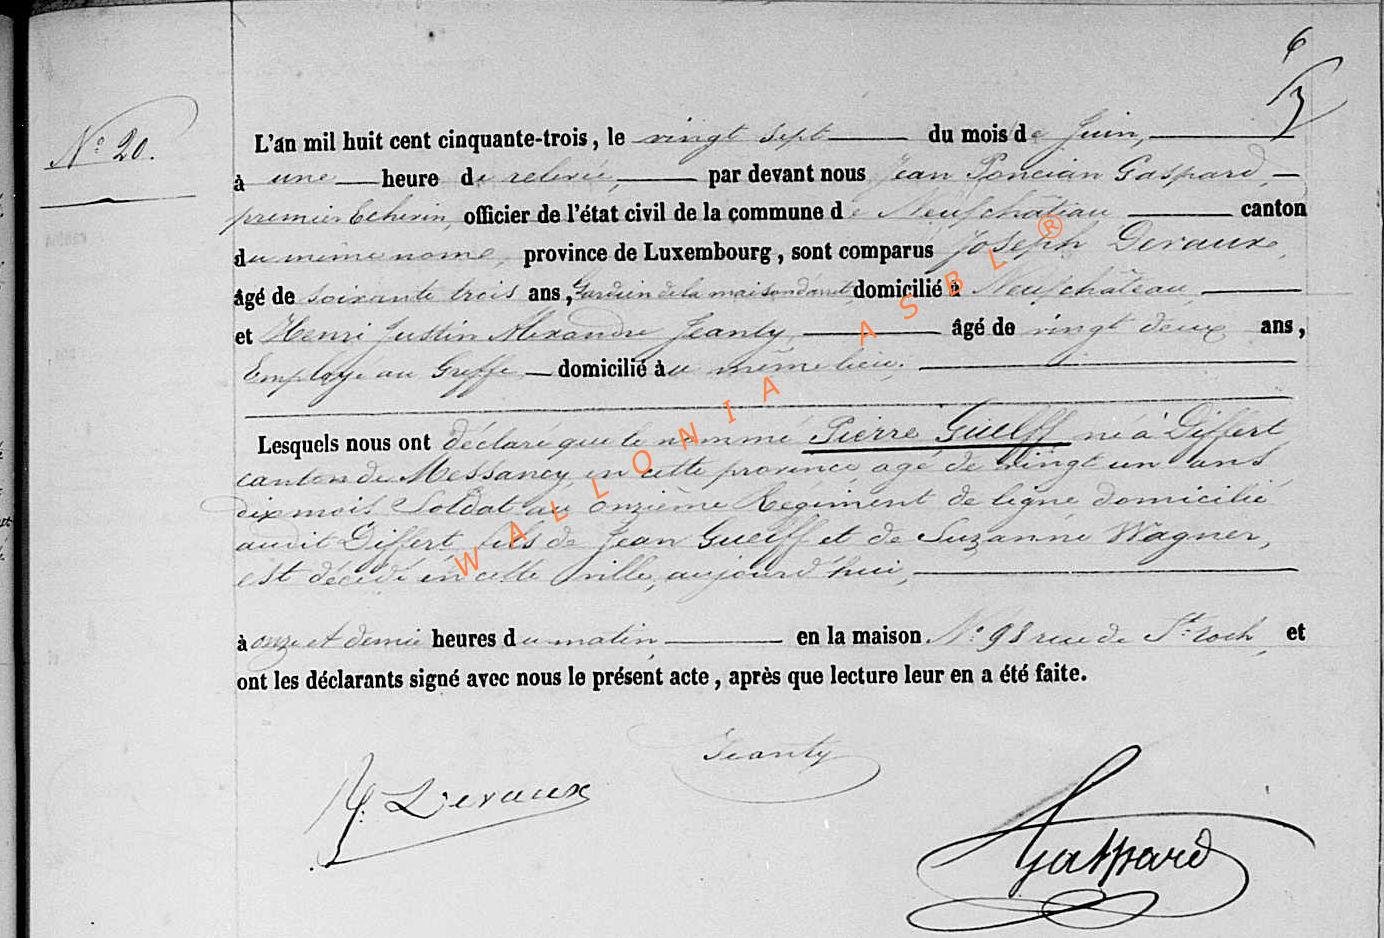 6
3
N° 20.
L'an mil huit cent cinquante-trois, le vingt sept du mois de Juin,
à une heure de relevée, par devant nous Jean Poncian Gaspard,
premier Echevin, officier de l'état civil de la commune de Neufchateau canton
du même nome, province de Luxembourg, sont comparus Joseph Devaux,
âgé de soixante trois ans, Gardien de la maison d'arrêt, domicilié à Neufchâteau,
et Henri Justin Alexandre Jeanty, âgé de vingt deux ans,
Employé au Greffe, domicilié au même lieu.
Lesquels nous ont déclaré que le nommé Pierre Guelff né à Differt
canton de Messancy en cette province, agé de vingt un ans
dix mois Soldat au onzième Régiment de ligne domicilié
audit Differt fils de Jean Guelff et de Suzanne Wagner,
est décédé en cette ville, aujourd'hui,
à onze et demie heures du matin, en la maison N° 98 rue de St. Roch, et
ont les déclarants signé avec nous le présent acte, après que lecture leur en a été faite.
Devaux
Jeanty
Gaspard
WALLONIA ASBL ®